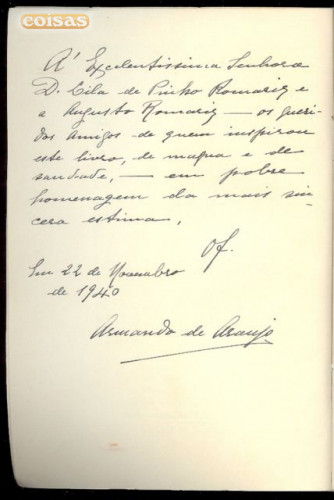 coisas
A' Excelentissima Senhora
D. Lila de Pinho Romariz e
a Augusto Romariz — os queri-
dos amigos de quem inspirou
este livro, de magua e de
saudade, — em pobre
homenagem da mais sin-
cera estima,
Of.
Em 22 de Novembro
de 1940
Armando de Araujo